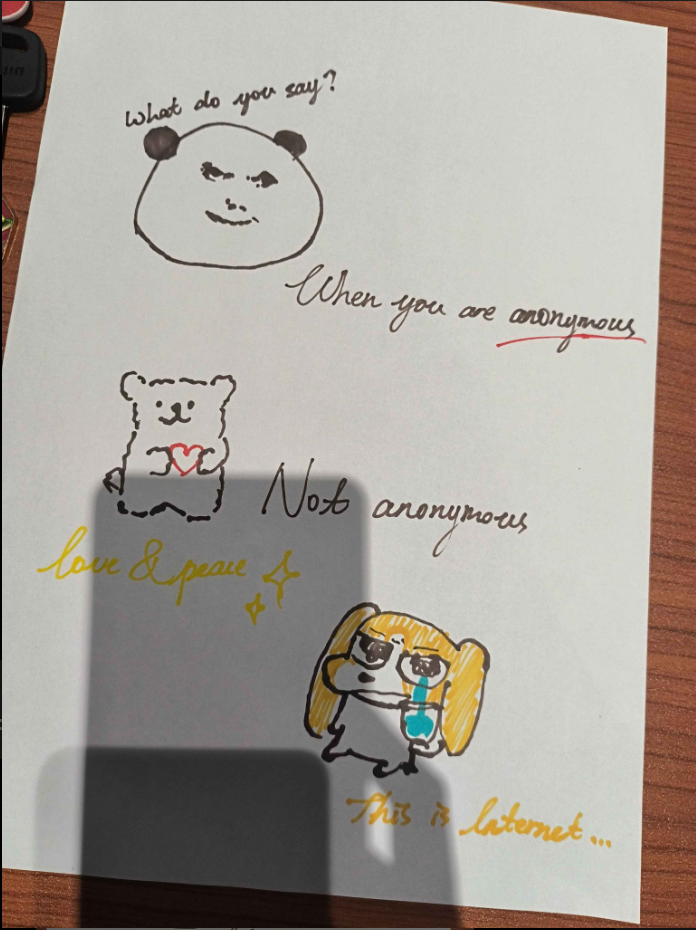 What do you say?
When you are anonymous
Not anonymous
love & peace
This is Internet...